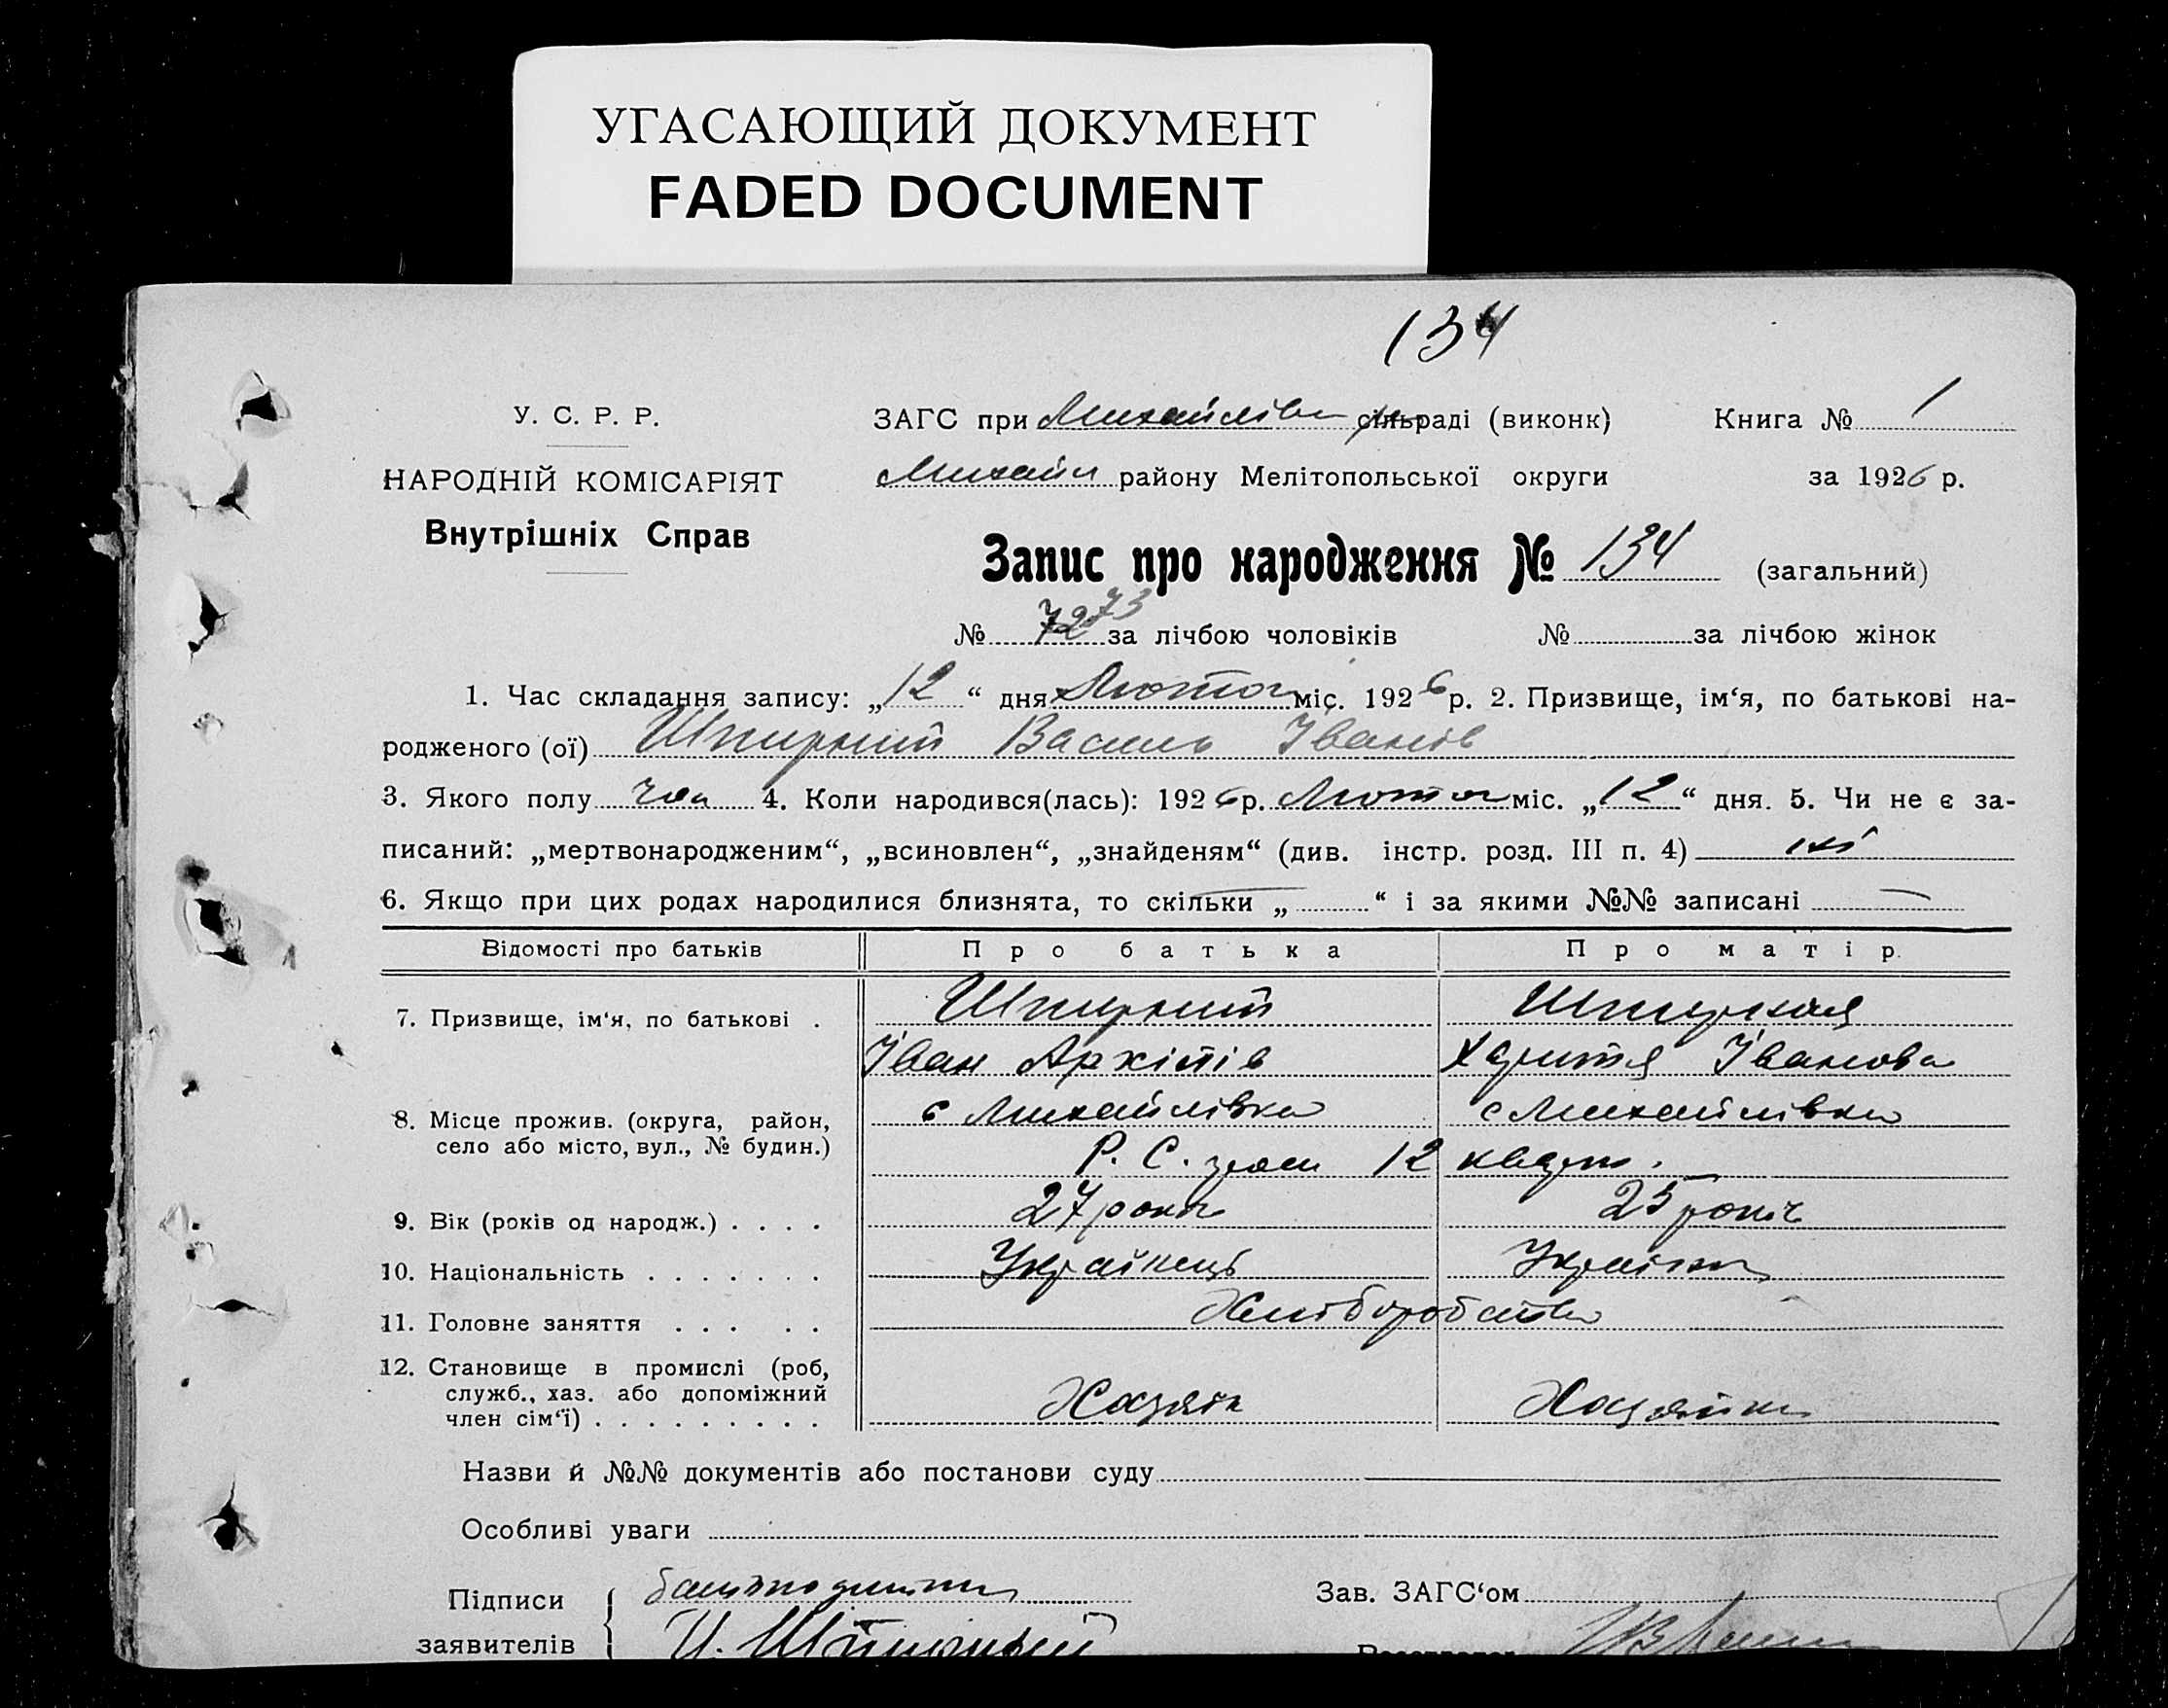 УГАСАЮЩИЙ ДОКУМЕНТ
FADED DOCUMENT
134
У. С. Р. Р.
НАРОДНІЙ КОМІСАРІЯТ
Внутрішніх Справ
ЗАГС при Михайлівк сільраді (виконк) Книга № 1
Михайл району Мелітопольської округи за 1926 р.
Запис про народження № 134 (загальний)
№ 72 73 за лічбою чоловіків № за лічбою жінок
1. Час складання запису: „12“ дня Лютого міс. 1926 р. 2. Призвище, ім‘я, по батькові на-
родженого (ої) Шпирний Василь Іванів
3. Якого полу чол 4. Коли народився(лась): 1926 р. Лютого міс. „12“ дня. 5. Чи не є за-
писаний: „мертвонародженим“, „всиновлен“, „знайденям“ (див. інстр. розд. III п. 4) ні
6. Якщо при цих родах народилися близнята, то скільки „ “ і за якими №№ записані
Відомості про батьків Про батька Про матір.
7. Призвище, ім‘я, по батькові . Шпирний Шпирная
Іван Архіпів Харитя Іванова
8. Місце прожив. (округа, район, с Михайлівка с Михайлівка
село або місто, вул., № будин.) Р. С. 12
9. Вік (років од народж.) . . . . 27 років 25 років
10. Національність . . . . . . . Українець Українка
11. Головне заняття . . . . . Хліборобство
12. Становище в промислі (роб,
служб., хаз. або допоміжний
член сім‘ї) . . . . . . . . . Хазяїн Хазяйка
Назви й №№ документів або постанови суду
Особливі уваги
Підписи батько дитини Зав. ЗАГС‘ом
заявителів